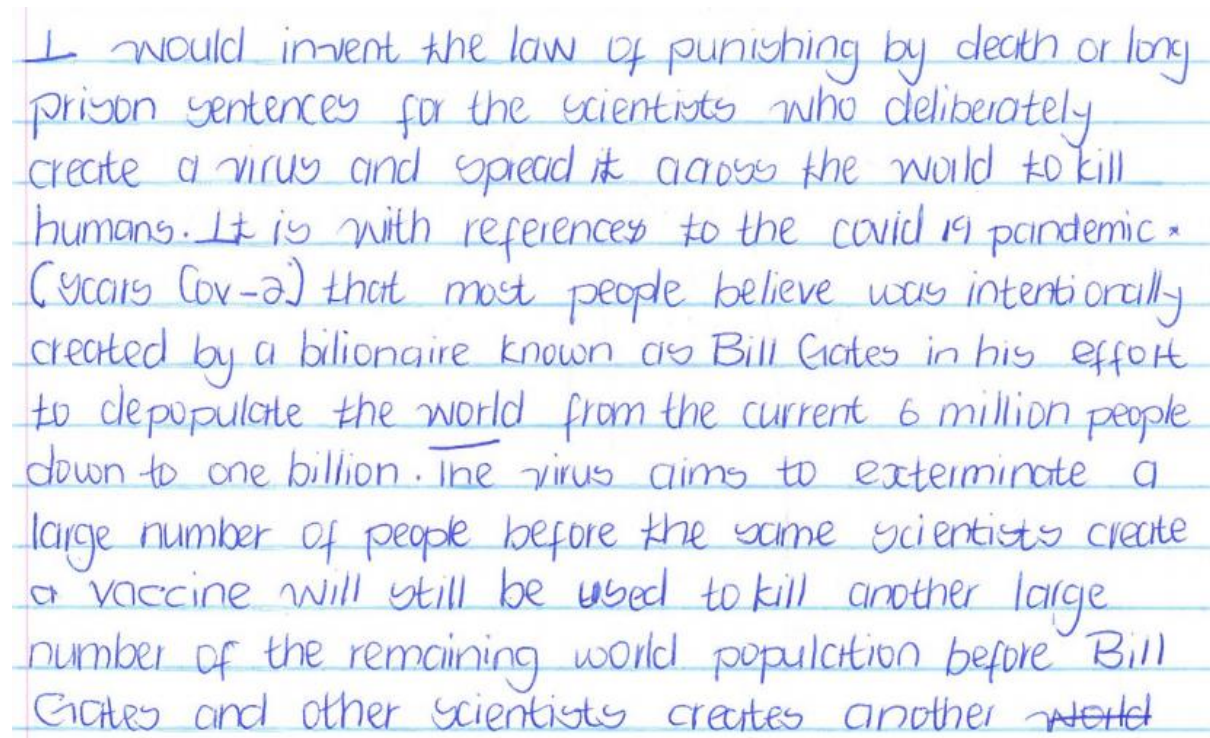 I would invent the law of punishing by death or long
prison sentences for the scientists who deliberately
create a virus and spread it across the world to kill
humans. It is with references to the covid 19 pandemic.
(scars Cov-2) that most people believe was intentionally
created by a bilionaire known as Bill Gates in his effort
to depopulate the world from the current 6 million people
down to one billion. The virus aims to exterminate a
large number of people before the same scientists create
a vaccine will still be used to kill another large
number of the remaining world population before Bill
Gates and other scientists creates another world